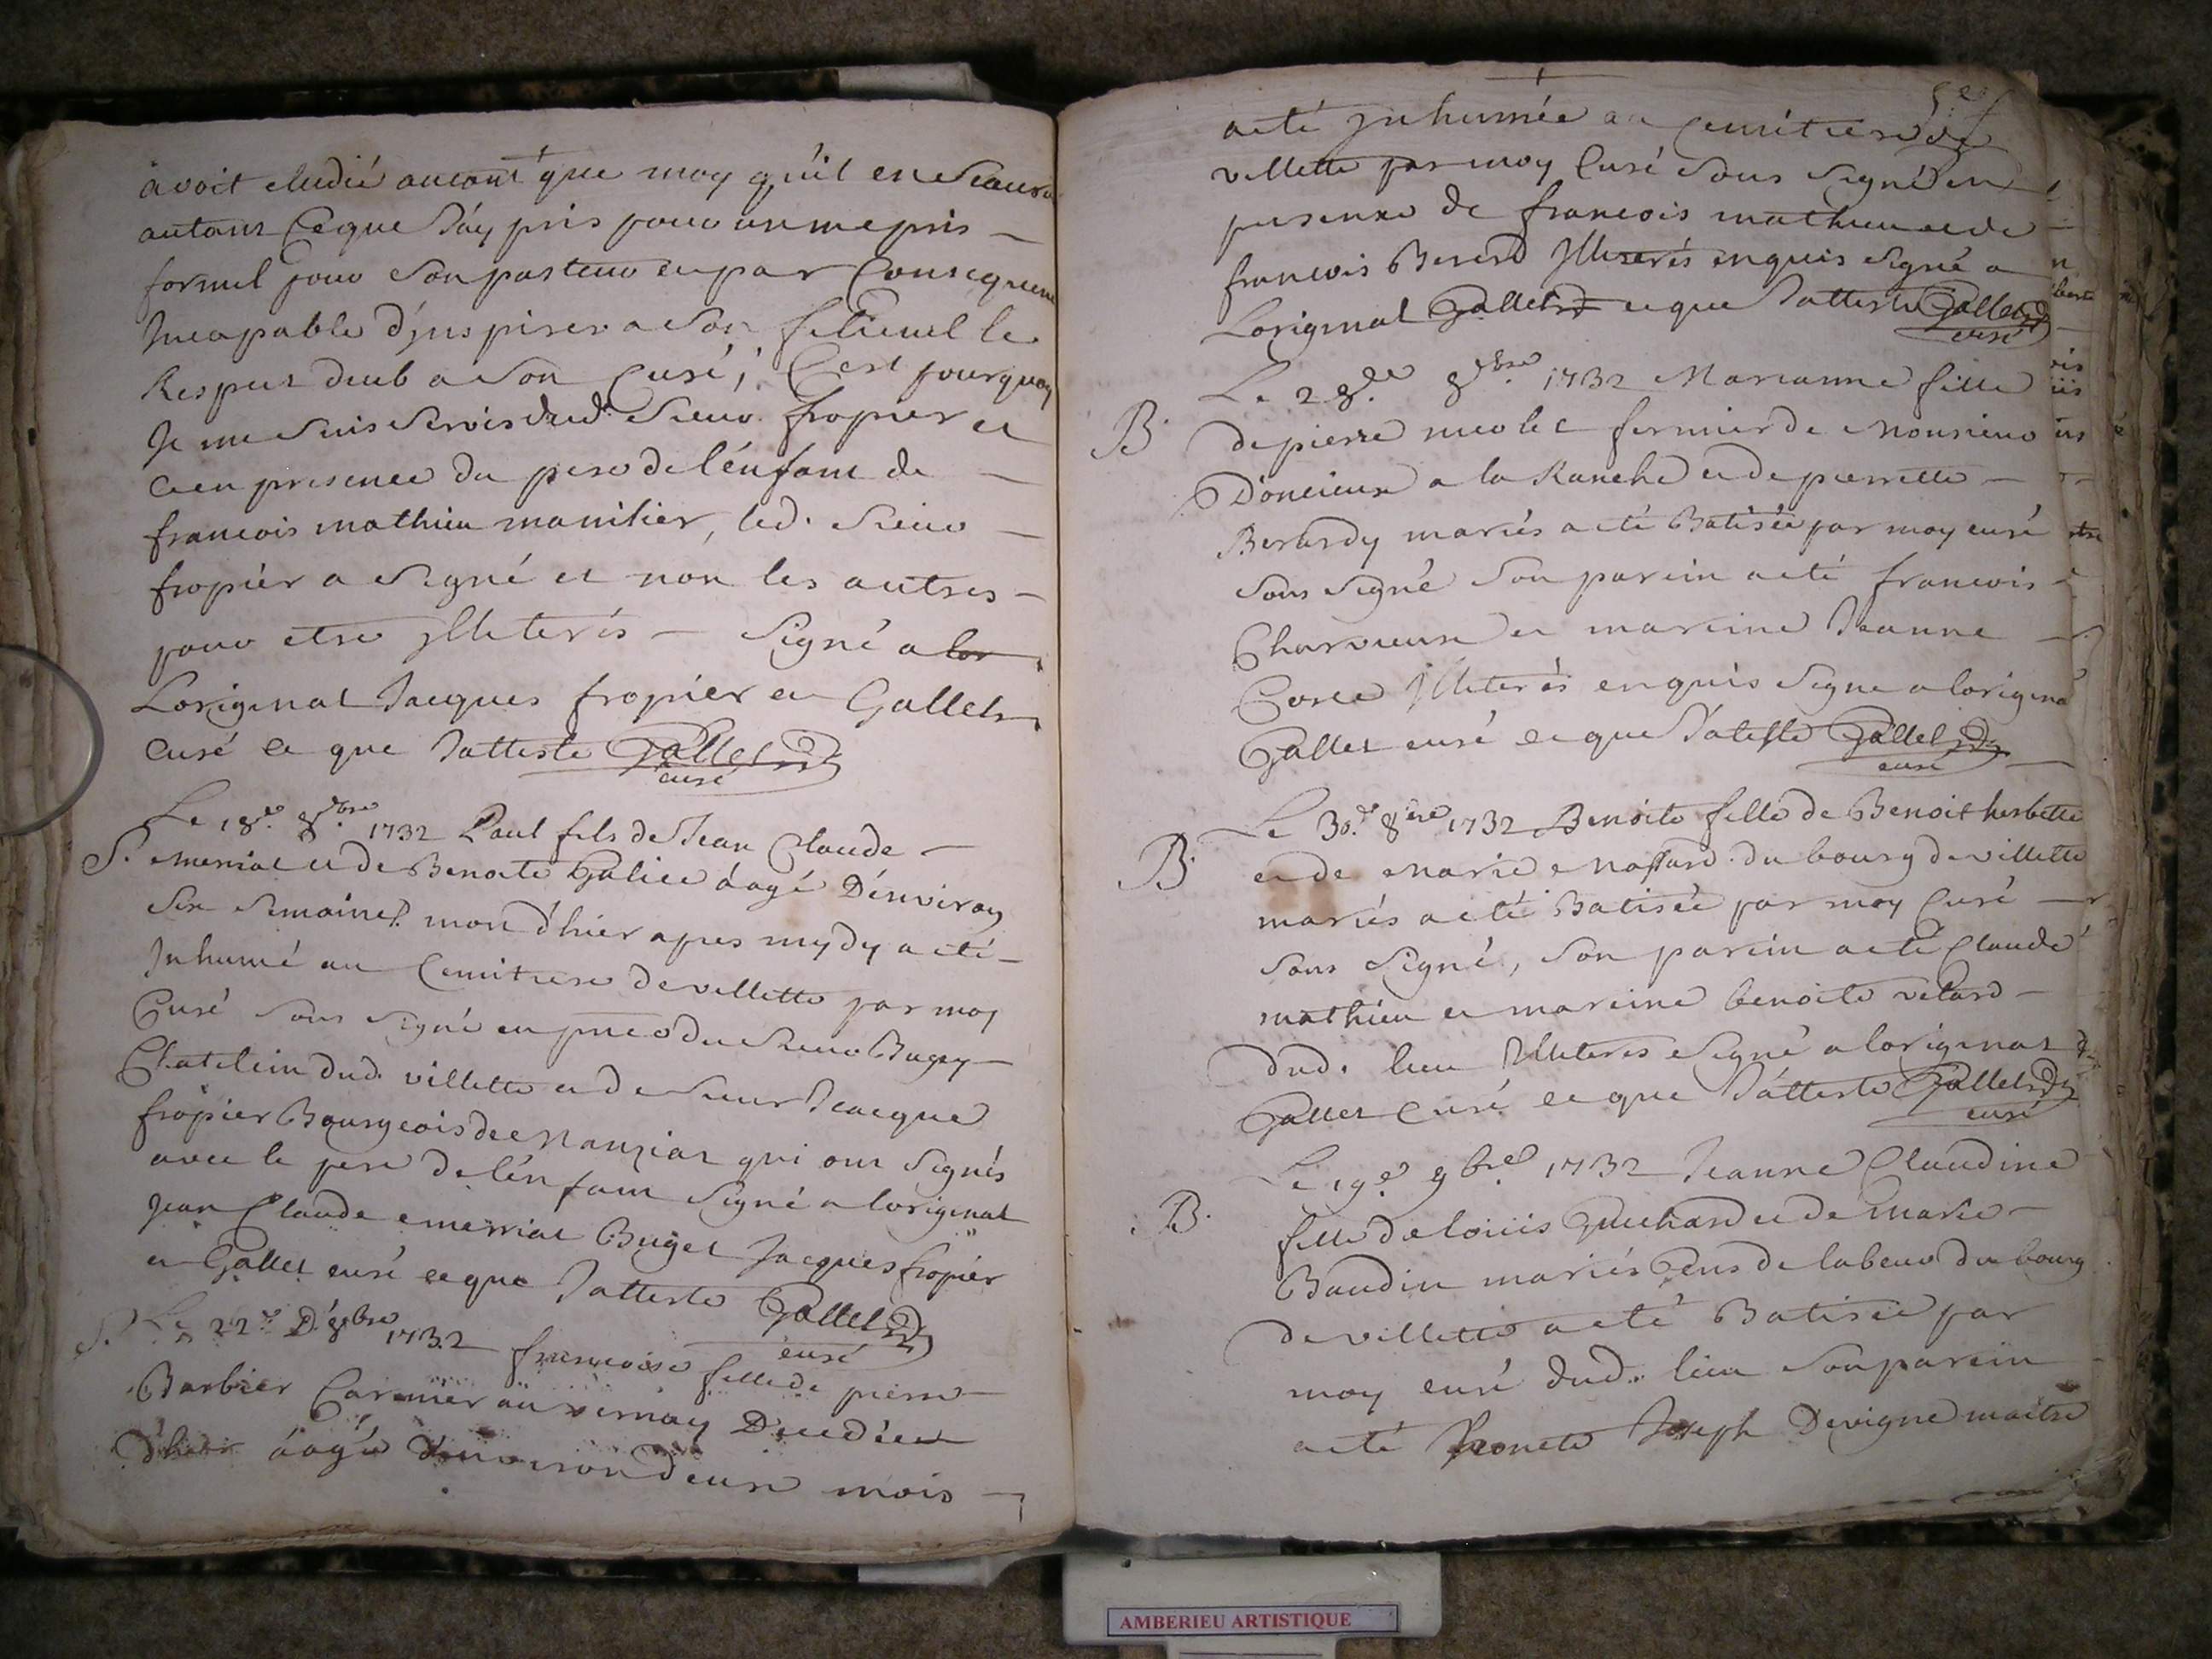 avoit etudié autant que moy qu'il en scauroit
autant Ce que J'ay pris pour un mepris
formel pour son pasteur et par Consequent
Incapable d'jnspirer a son filieul le
Respect deub a son Curé; C'est pourquoy
Je me suis servis dud. Sieur fropier et
ce en presence du pere de l'enfant de
francois mathieu manilier, led. sieur
fropier a signé et non les autres
pour etre jlliterés Signé a lor
Loriginal Jacques fropier et Gallet
curé ce que Jatteste Gallet
curé
Le 18.e 8.bre 1732 Paul fils de Jean Claude
S. emeriat et de Benoite Galice áagé D'environ
six semaines mort d'hier apres mydy a eté
Inhumé au Cemitiere de villette par moy
Curé sous signé en pnce du Sieur Buget
Chatelein dud. villette et de sieur Jacque
fropier Bourgeois de qui ont signés
avec le pere de lénfant signé a loriginal
Jean Claude emerriat Buget Jacques fropier
et Gallet curé ce que Jatteste Gallet
curé
S. Le 22.e D'8bre 1732 francoise fille de pierre
Barbier au vernay Decedée
d'hier áagée d'environ deux mois
a eté Jnhumée au Cemitiere de
villette par moy Curé sous signé en
presence de francois mathieu et de
francois Bererd Jlliterés enquis signé a
Loriginal Gallet ce que Jatteste Gallet
curé
Le 28.e 8.bre 1732 Marianne fille
B. de pierre nicolet fermier de Monsieur
Doncieux a la Ranche et de pierrette
Berardy mariés a eté Batisée par moy curé
sous signé son parein a eté francois
Charvieux et mareine Jeanne
Jlliterés enquis signe a loriginal
Gallet curé ce que J'ateste Gallet
curé
Le 30.e 8bre 1732 Benoite fille de Benoit herbette
B. et de marie du bourg de villette
mariés a eté Batisée par moy Curé
sous signé, son parein a eté Claude
mathieu et mareine benoite velard
dud. lieu Jlliteres signé a loriginal
Gallet Curé ce que J'atteste Gallet
curé
Le 19.e 9bre 1732 Jeanne Claudine
B. fille de loüis Guichard et de marie
Baudin mariés Gens de labeur du bourg
de villette a eté Batisée par
moy curé dud. lieu son parein
a eté Joseph Devigne maitre
AMBERIEU ARTISTIQUE